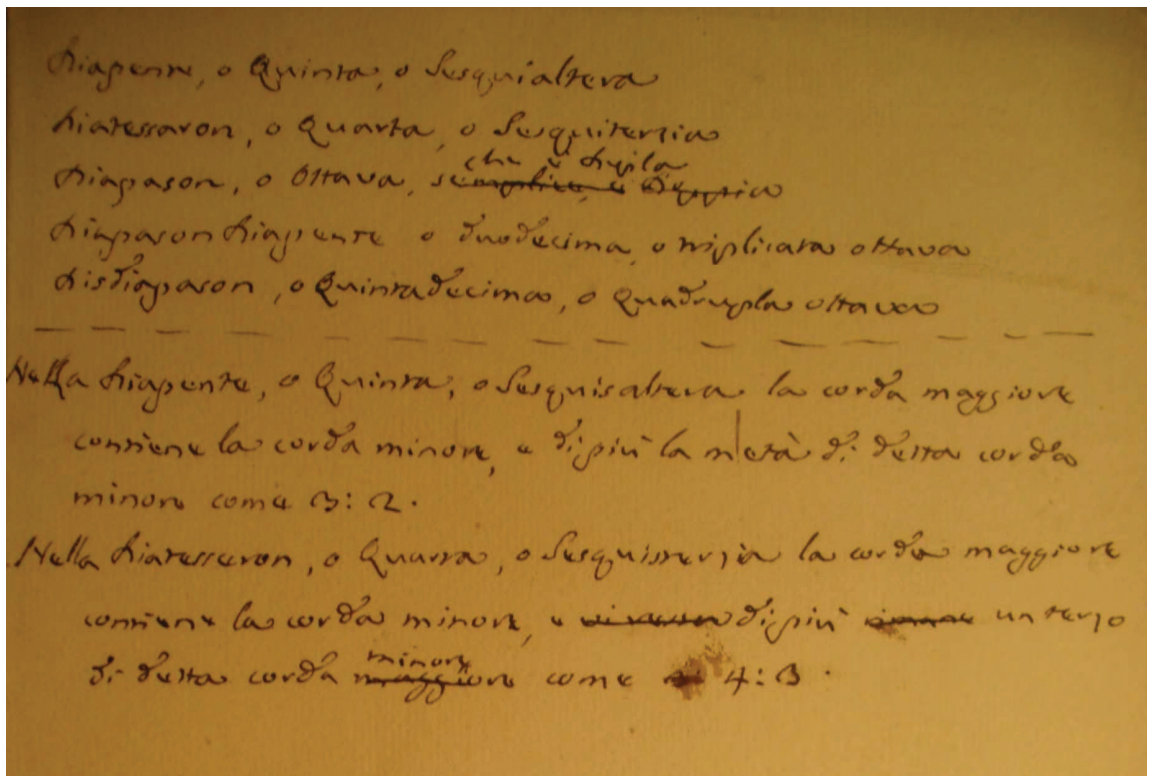 Diapente, o Quinta, o Sesquialtera
Diatessaron, o Quarta, o Sesquiterzia
che è Dupla
Diapason, o Ottava, semplice, e Doppia
Diapason Diapente o duodecima, o triplicata ottava
Disdiapason, o Quintadecima, o Quadrupla ottava
Nella Diapente, o Quinta, o Sesquisaltera la corda maggiore
contiene la corda minore, e di più la metà di detta corda
minore come 3:2.
Nella Diatesseron, o Quarta, o Sesquisterzia la corda maggiore
contiene la corda minore, e di più un terzo
minore
di detta corda maggiore come 4:3.